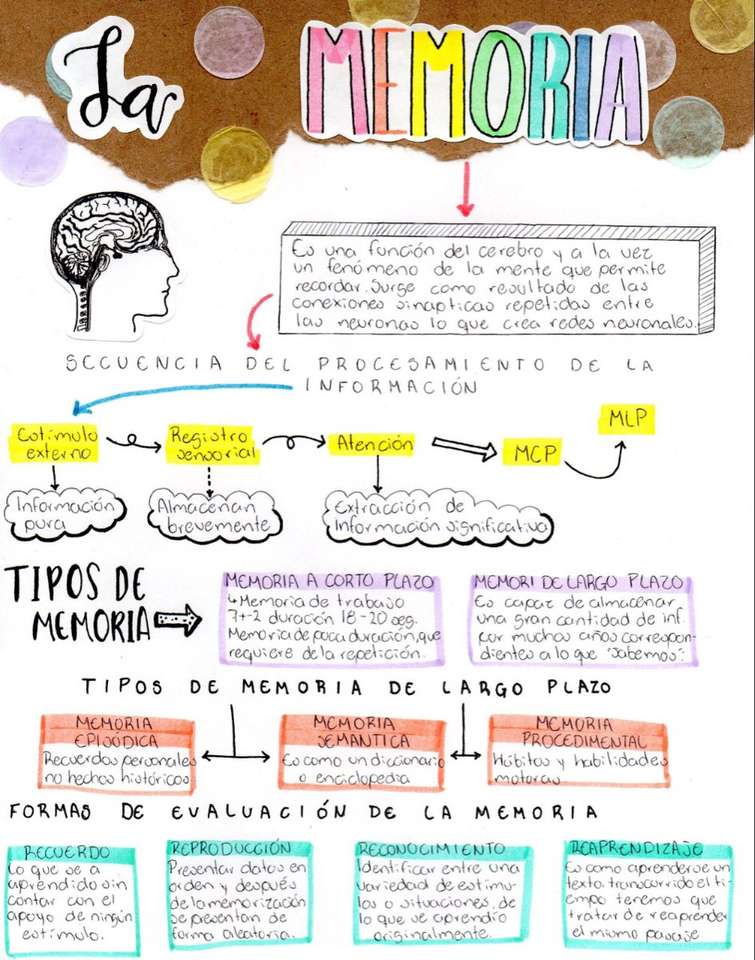 La MEMORIA
Es una función del cerebro y a la vez
un fenómeno de la mente que permite
recordar. Surge como resultado de las
conexiones sinapticas repetidas entre
las neuronas lo que crea redes neuronales.
SECUENCIA DEL PROCESAMIENTO DE LA
INFORMACIÓN
Estímulo
externo
Registro
sensorial
Atención
MCP
MLP
Información
pura
Almacenan
brevemente
Extracción de
información significativa
TIPOS DE
MEMORIA
MEMORIA A CORTO PLAZO
↳Memoria de trabajo
7+-2 duración 18-20 seg.
Memoria de poca duración, que
requiere de la repetición.
MEMORI DE LARGO PLAZO
Es capaz de almacenar
una gran cantidad de inf.
por muchos años correspon-
dientes a lo que "sabemos".
TIPOS DE MEMORIA DE LARGO PLAZO
MEMORIA
EPISÓDICA
Recuerdos personales
no hechos históricos
MEMORIA
SEMANTICA
Es como un diccionario
o enciclopedia
MEMORIA
PROCEDIMENTAL
Hábitos y habilidades
motoras
FORMAS DE EVALUACIÓN DE LA MEMORIA
RECUERDO
Lo que se a
aprendido sin
contar con el
apoyo de ningún
estímulo.
REPRODUCCIÓN
Presentar datos en
orden y después
de la memorización
se presentan de
forma aleatoria.
RECONOCIMIENTO
Identificar entre una
variedad de estimu-
los o situaciones, de
lo que se aprendio
originalmente.
REAPRENDIZAJE
Es como aprenderse un
texto, transcurrido el ti-
empo tenemos que
tratar de reaprender
el mismo pasaje